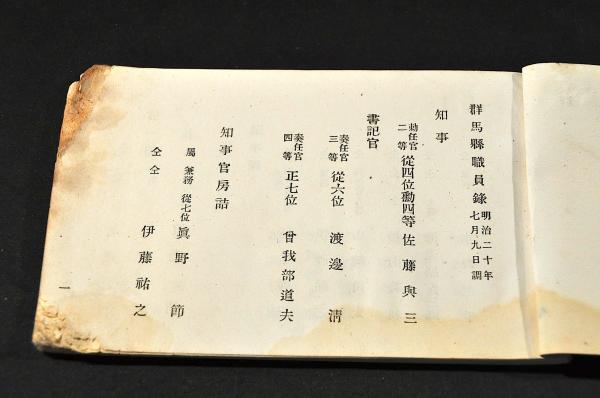 群馬縣職員錄 明治二十年七月九日調
知事
勅任官二等 從四位勳四等 佐藤與三
書記官
奏任官三等 從六位 渡邊淸
奏任官四等 正七位 曾我部道夫
知事官房詰
屬 兼務 從七位 眞野節
仝 仝 伊藤祐之
一